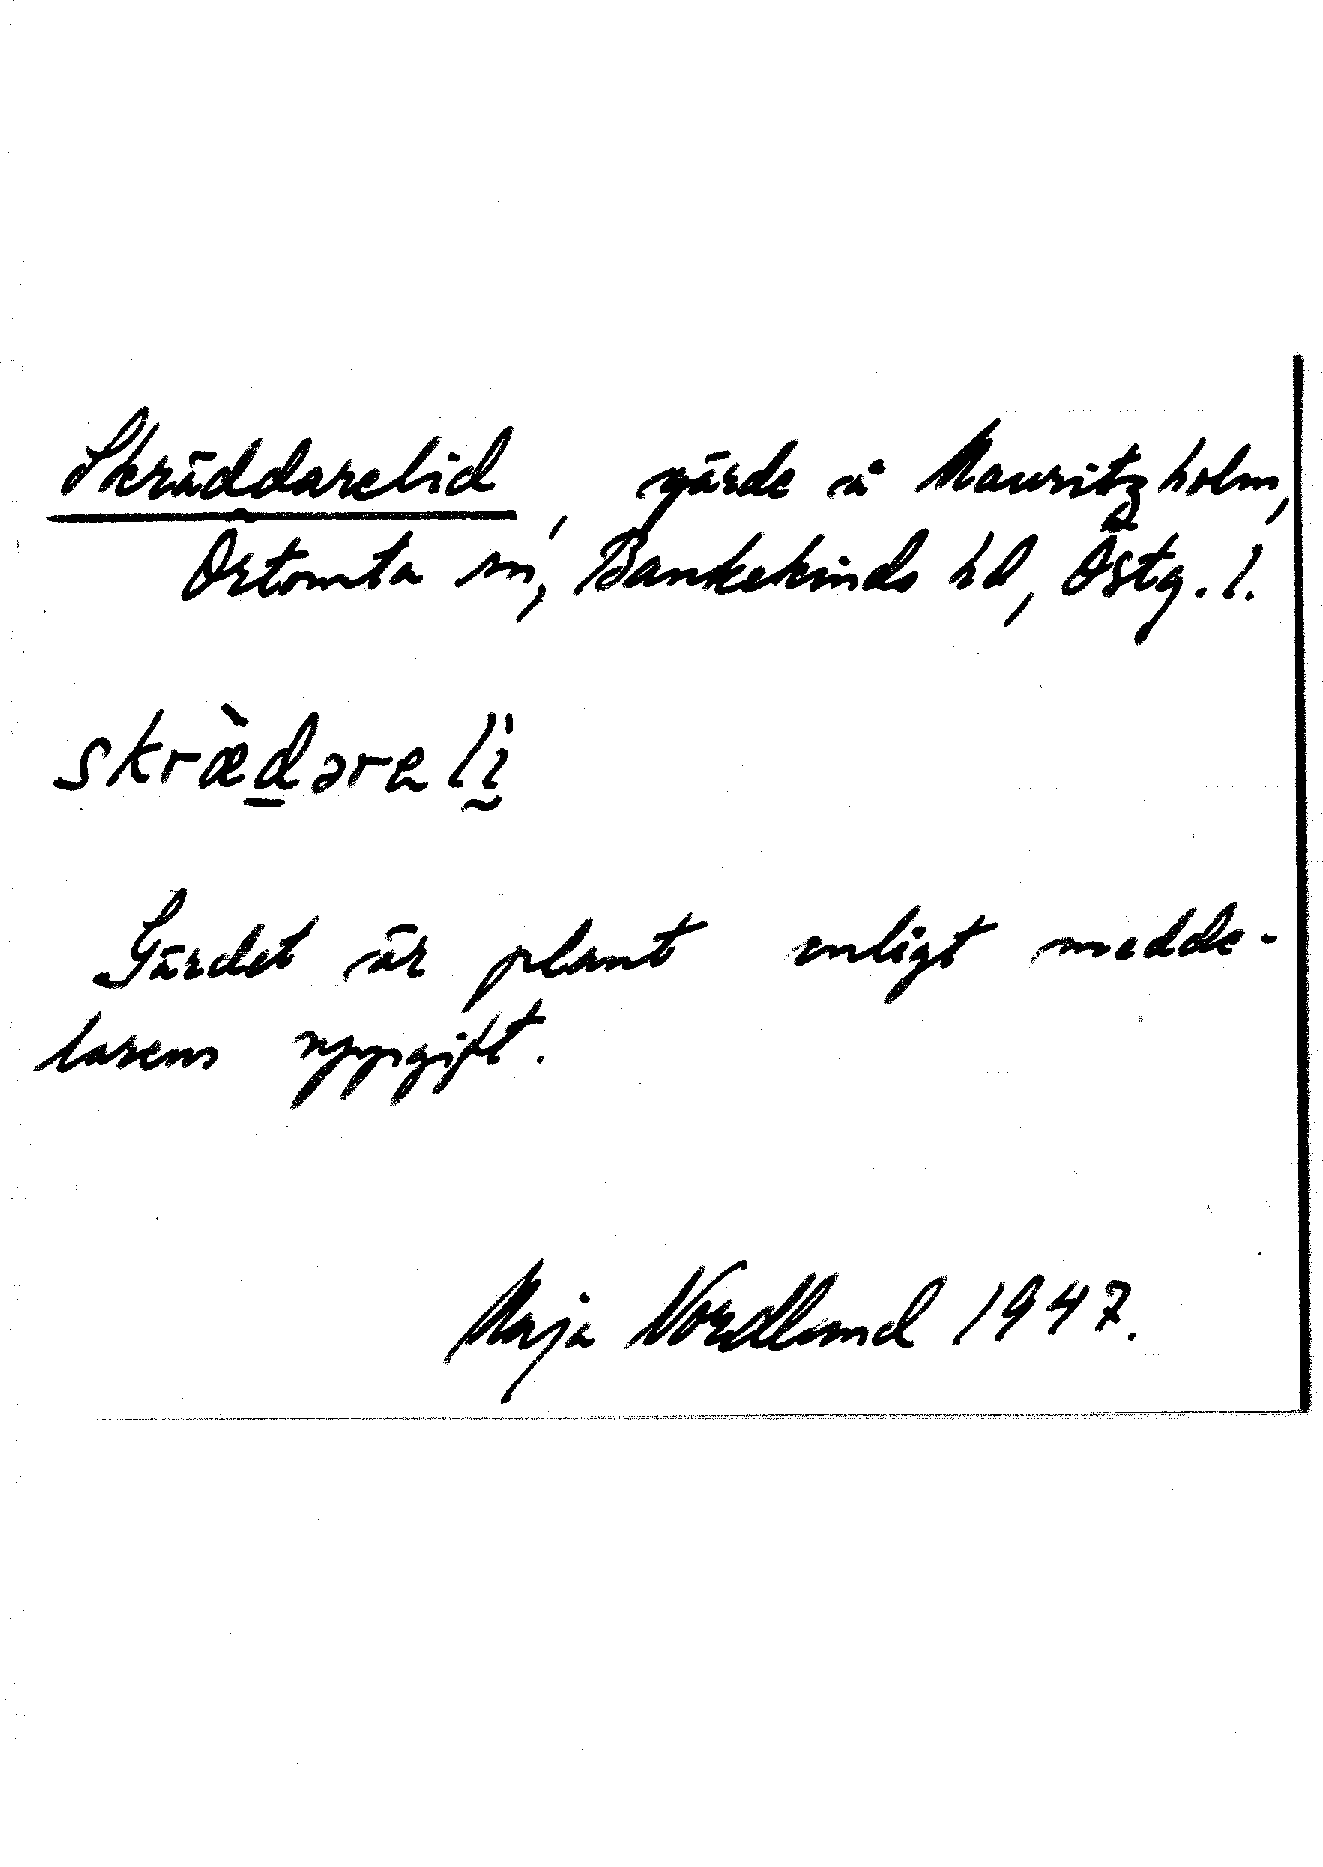 Skräddarelid, gärde å Mauritzholm,
Örtomta sn, Bankekinds hd, Östg. l.
skræ̀d̲ərelḭ̀
Gärdet är plant enligt medde-
larens uppgift.
Maja Nordlund 1947.